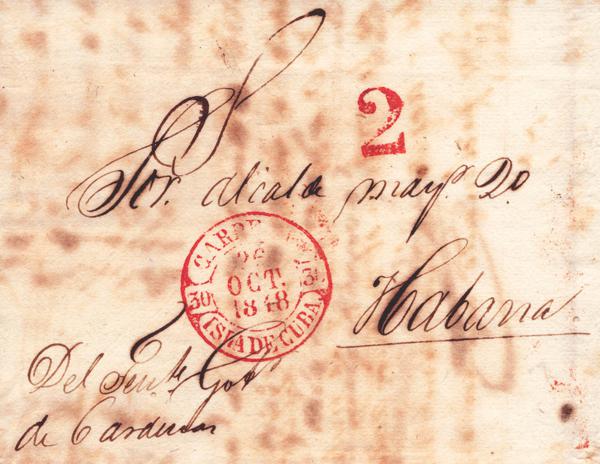 2
Sor. Alcalde mayr. 2o.
CARDENAS
26
OCT.
1848
30
ISLA DE CUBA
Habana
Del Tente. Gobr.
de Cardenas